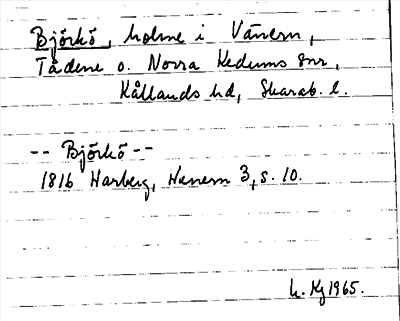 Björkö, holme i Vänern,
Tådene o. Norra Kedums snr,
Kållands hd, Skarab. l.
-- Björkö --
1816 Harberg, Wenern 3, s. 10.
h. Kj 1965.